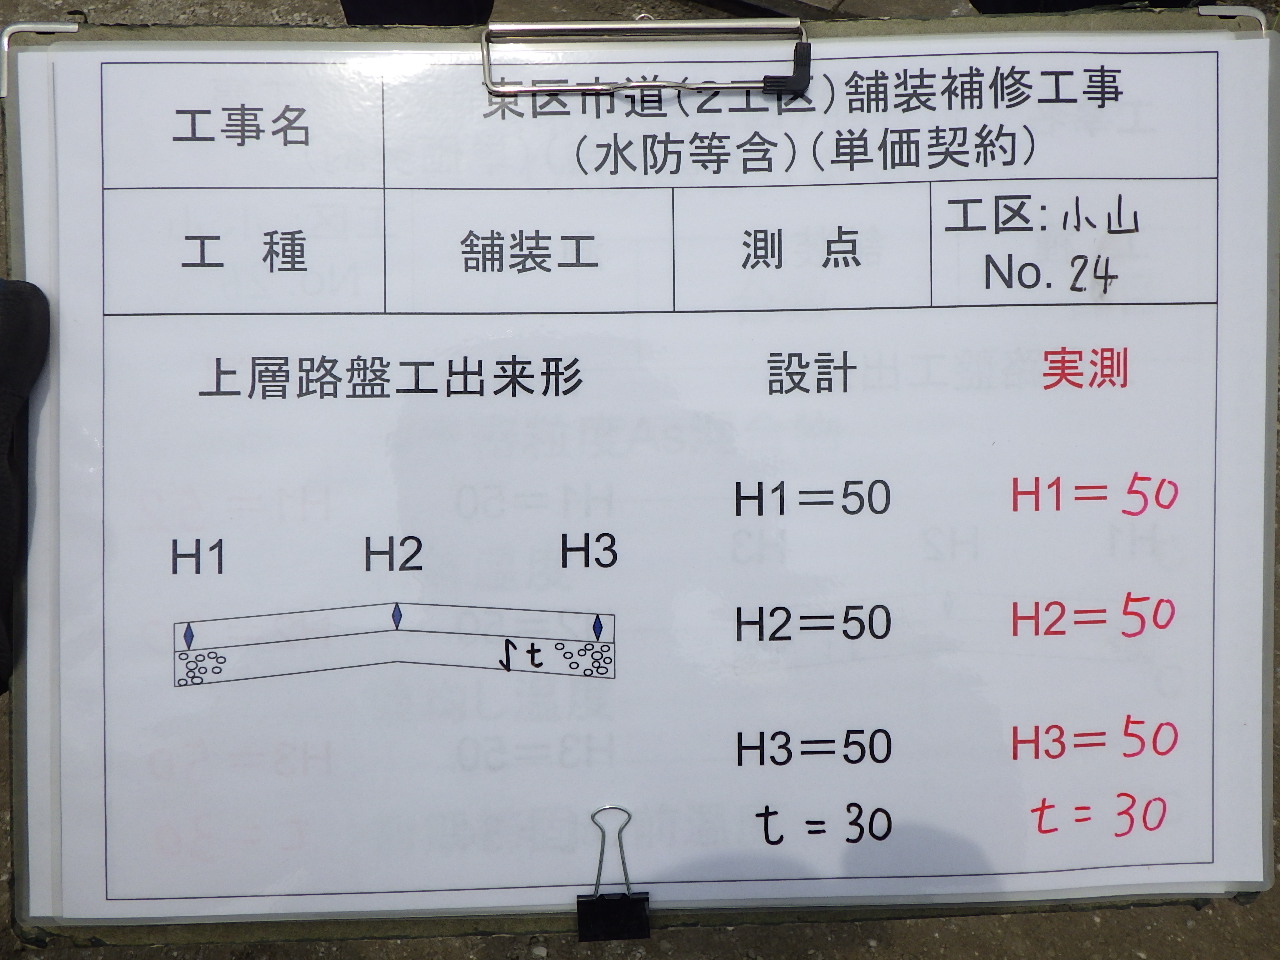 工事名
東区市道(2工区)舗装補修工事
(水防等含)(単価契約)
工種
舗装工
測点
工区: 小山
No. 24
上層路盤工出来形
設計
実測
H1 H2 H3
t
H1=50
H1=50
H2=50
H2=50
H3=50
H3=50
t=30
t=30